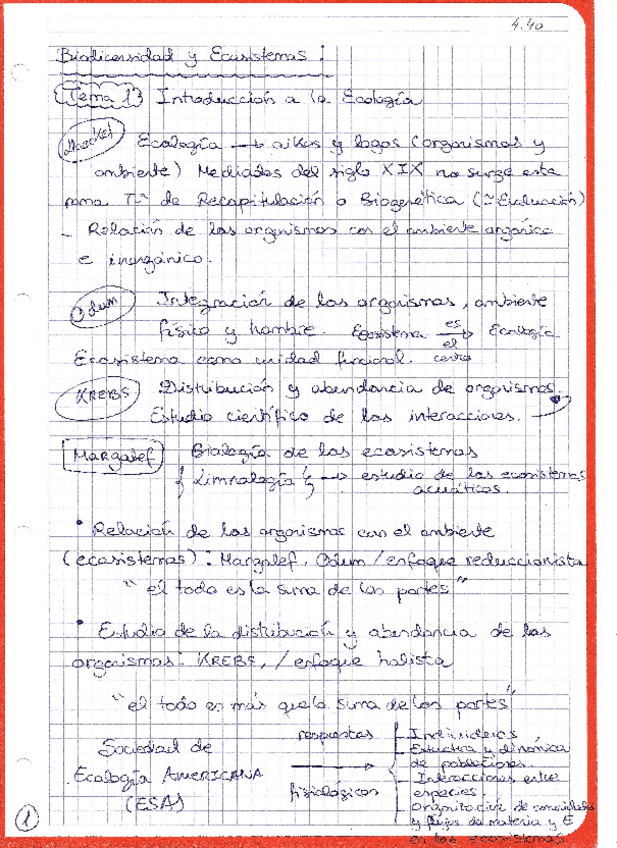 4.40
Biodiversidad y Ecosistemas:
Tema 1 Introducción a la Ecología
Haeckel Ecología → oikos y logos (organismos y
ambiente) Mediados del siglo XIX no surge esta
rama Tª de Recapitulación o Biogenética (≃ Evolución)
- Relación de los organismos con el ambiente orgánico
e inorgánico.
Odum Integración de los organismos, ambiente
físico y hombre. Ecosistema es el centro → Ecología
Ecosistema como unidad funcional.
KREBS Distribución y abundancia de organismos.
Estudio científico de las interacciones.
Margalef Biología de los ecosistemas
{Limnología} → estudio de los ecosistemas
acuáticos.
• Relación de los organismos con el ambiente
(ecosistemas): Margalef, Odum / enfoque reduccionista
"el todo es la suma de las partes"
• Estudio de la distribución y abundancia de los
organismos: KREBS, / enfoque holista
"el todo es más que la suma de las partes"
Sociedad de
Ecología AMERICANA
(ESA)
respuestas
fisiológicas
- Individuos
- Estructura y dinámica
de poblaciones.
- Interacciones entre
especies.
- Organización de comunidades
y flujos de materia y E
en los ecosistemas
1